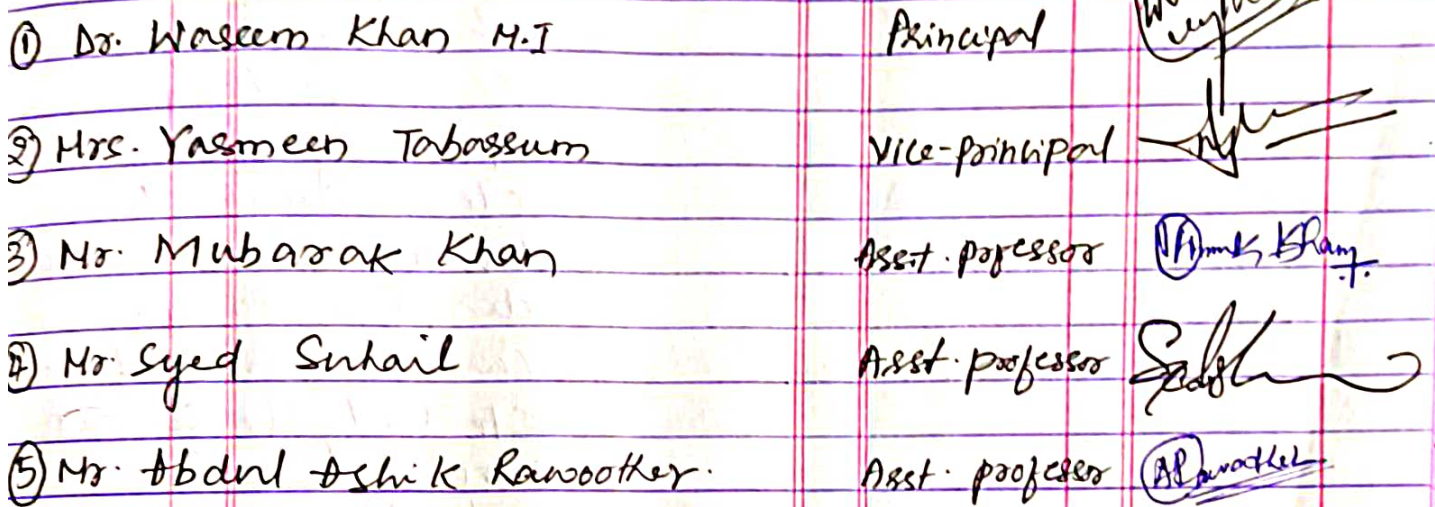 ① Dr. Waseem Khan M.I Principal
② Mrs. Yasmeen Tabassum Vice-principal
③ Mr. Mubarak Khan Asst. professor Khan
④ Mr. Syed Suhail Asst. professor
⑤ Mr. Abdul Ashik Rawoother. Asst. professor ARawother